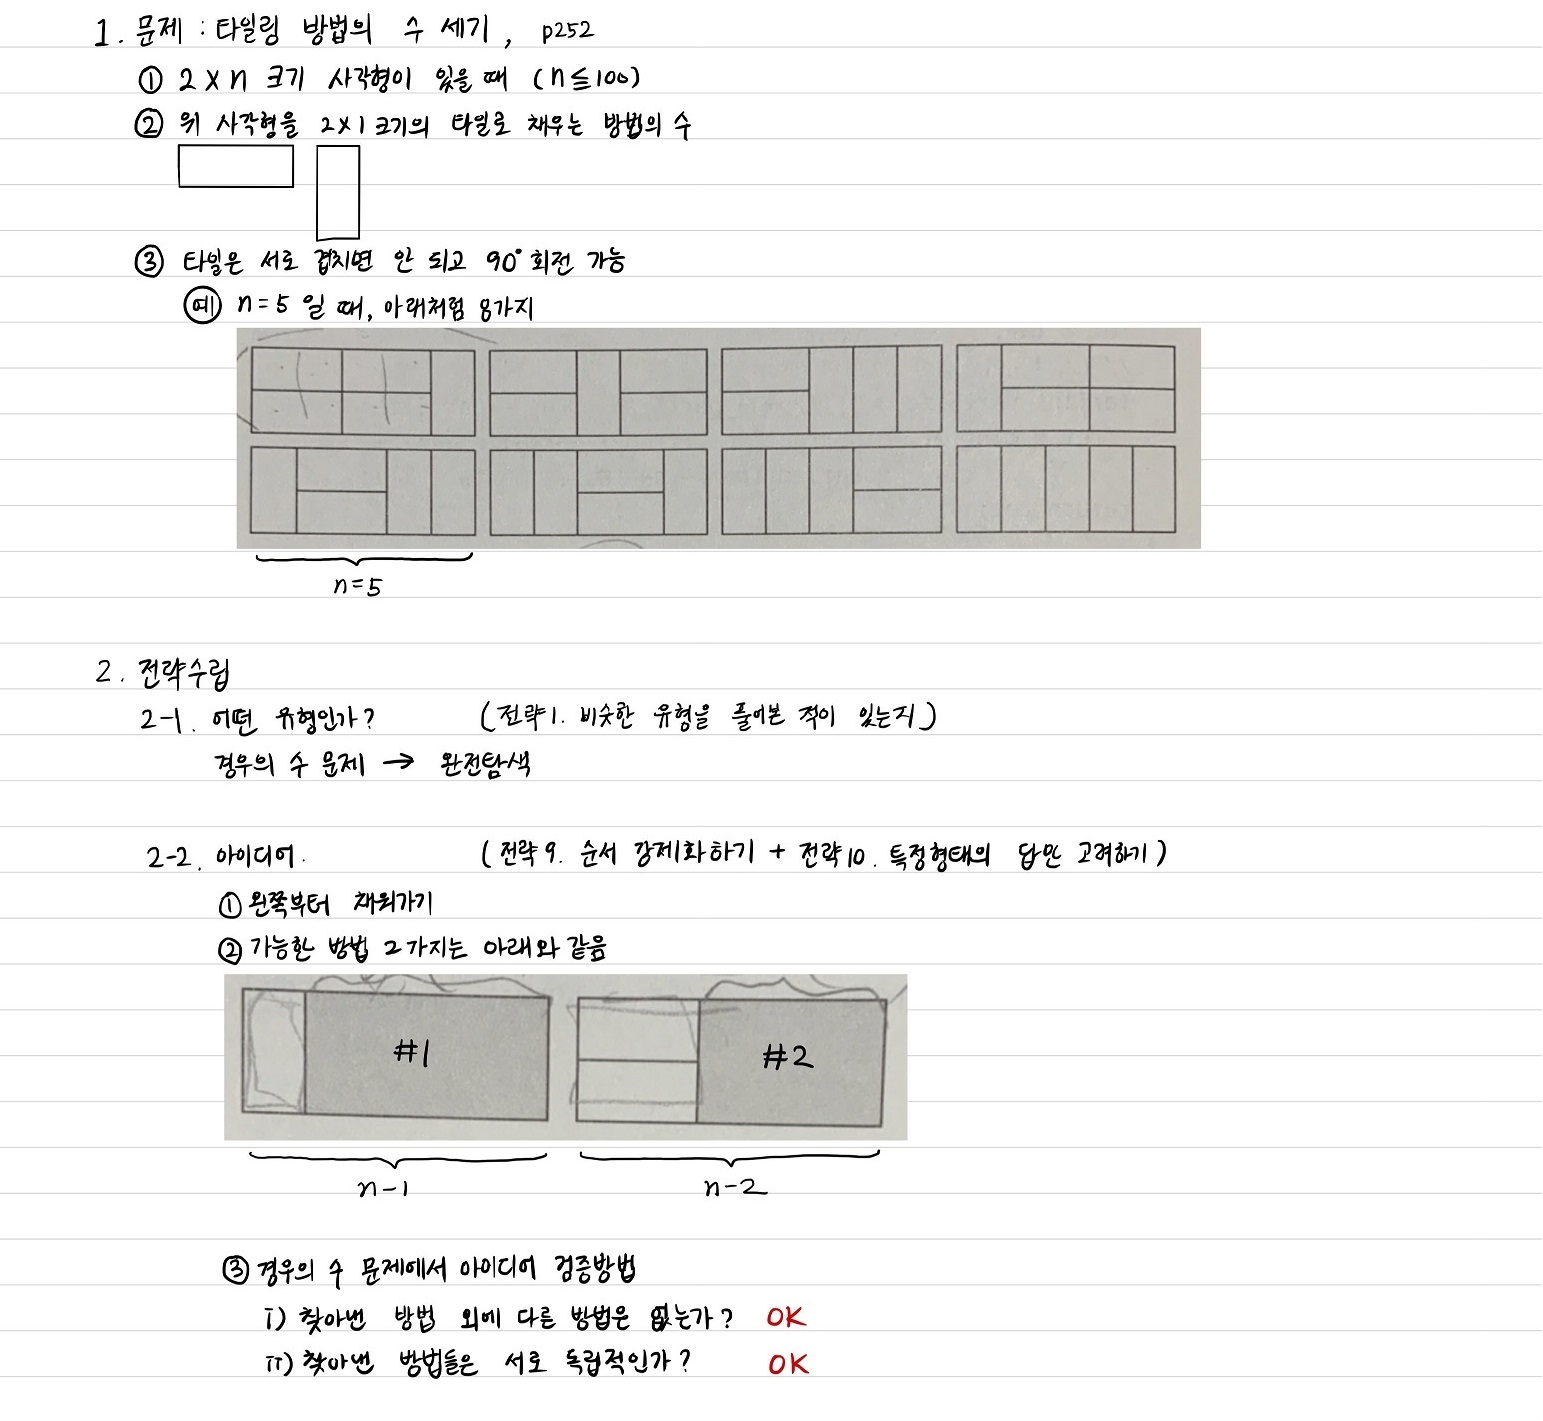 1. 문제 : 타일링 방법의 수 세기, p252
① 2×n 크기 사각형이 있을 때 (n≦100)
② 위 사각형을 2×1 크기의 타일로 채우는 방법의 수
③ 타일은 서로 겹치면 안 되고 90° 회전 가능
예 n=5 일 때, 아래처럼 8가지
n=5
2. 전략수립
2-1. 어떤 유형인가? (전략1. 비슷한 유형을 풀어본 적이 있는지)
경우의 수 문제 → 완전탐색
2-2. 아이디어. (전략9. 순서 강제화하기 + 전략10. 특정형태의 답만 고려하기)
① 왼쪽부터 채워가기
② 가능한 방법 2가지는 아래와 같음
#1 #2
n-1 n-2
③ 경우의 수 문제에서 아이디어 검증방법
i) 찾아낸 방법 외에 다른 방법은 없는가? OK
ii) 찾아낸 방법들은 서로 독립적인가? OK